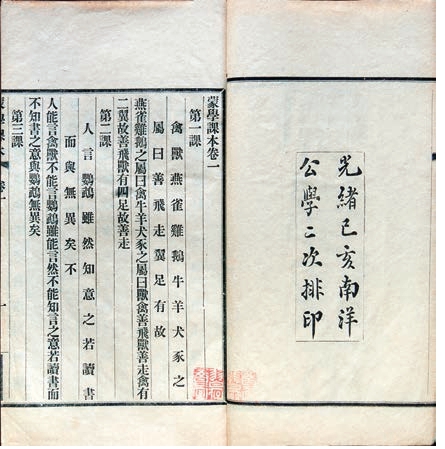 光緒己亥南洋
公學二次排印
蒙學課本卷一
第一課
禽獸燕雀雞鵝牛羊犬豕之
屬曰善飛走翼足有故
燕雀雞鵝之屬曰禽牛羊犬豕之屬曰獸禽善飛獸善走禽有
二翼故善飛獸有四足故善走
第二課
人言鸚鵡雖然知意之若讀書
而與無異矣不
人能言禽獸不能言鸚鵡雖能言然不能知言之意若讀書而
不知書之意與鸚鵡無異矣
第三課
蒙學課本 卷一 一